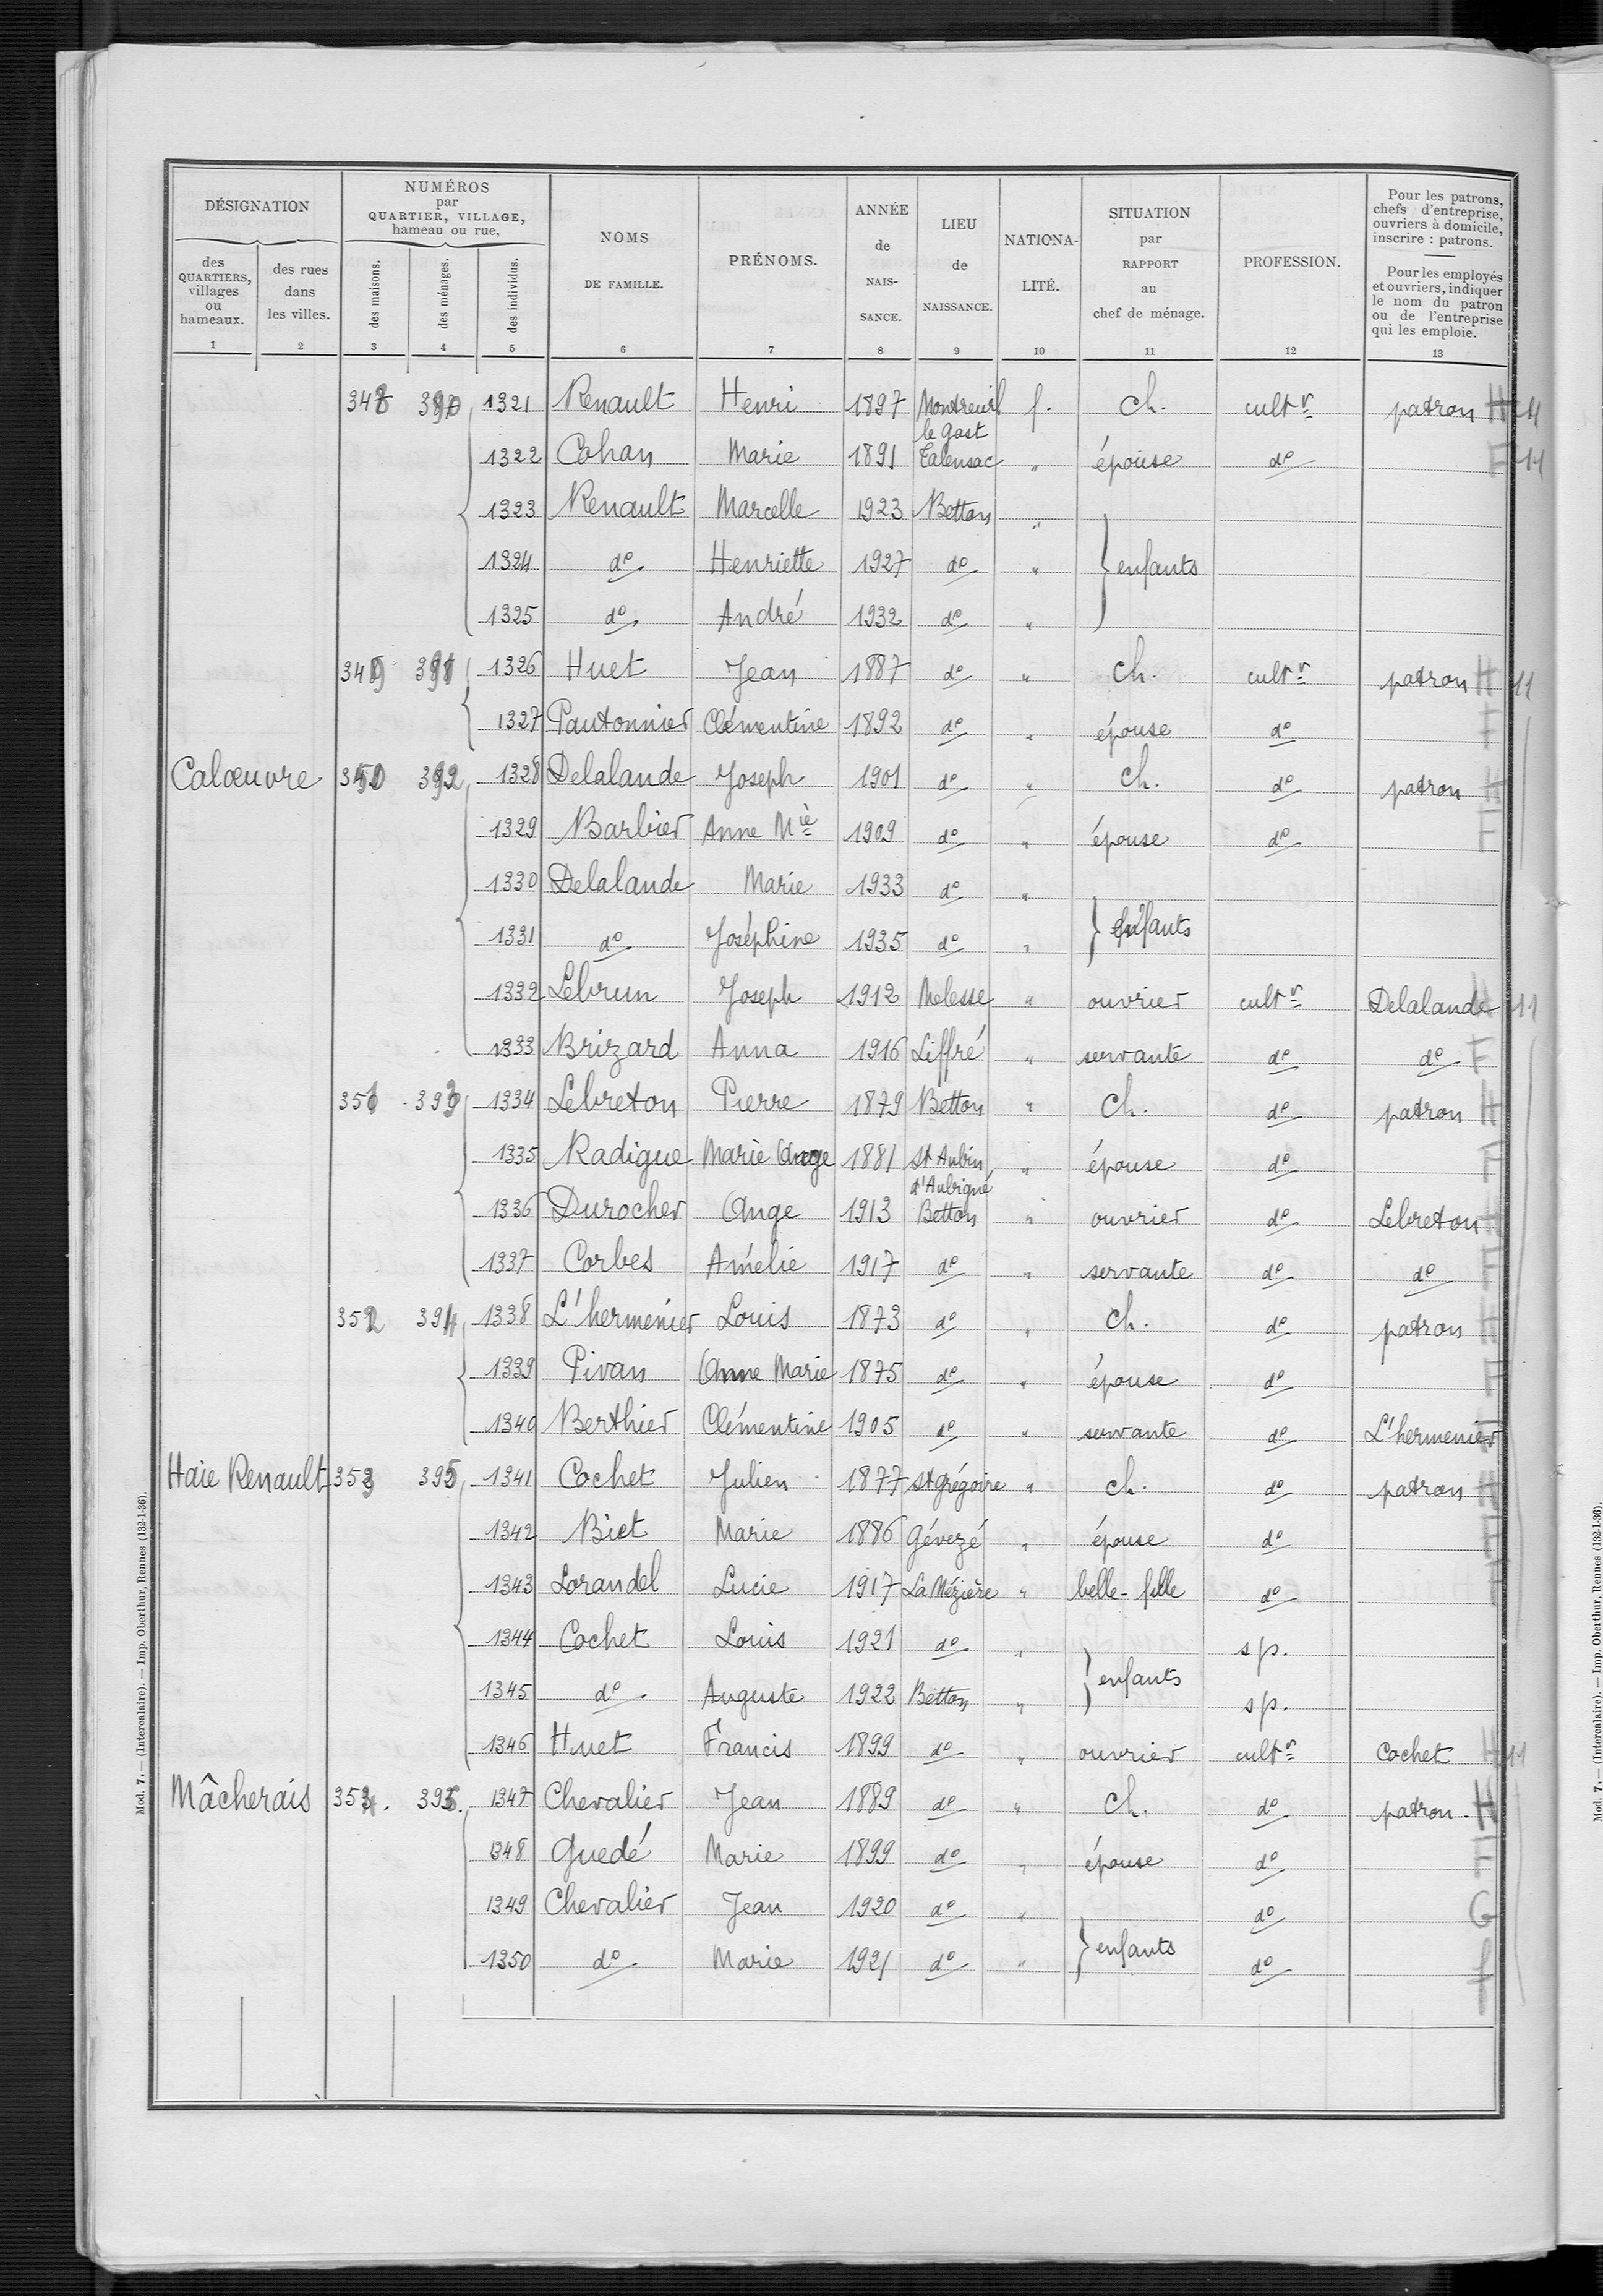 DÉSIGNATION
des QUARTIERS, villages ou hameaux.
des rues dans les villes.
NUMÉROS par QUARTIER, VILLAGE, hameau ou rue.
des maisons.
des ménages.
des individus.
NOMS DE FAMILLE.
PRÉNOMS.
ANNÉE de NAIS- SANCE.
LIEU de NAISSANCE.
NATIONA- LITÉ.
SITUATION par RAPPORT au chef de ménage.
PROFESSION.
Pour les patrons, chefs d'entreprise, ouvriers à domicile, inscrire : patrons.
Pour les employés et ouvriers, indiquer le nom du patron ou de l'entreprise qui les emploie.
1 2 3 4 5 6 7 8 9 10 11 12 13
348 390 1321 Renault Henri 1897 Montreuil le Gast f. ch. cultr patron H 11
1322 Cohan Marie 1891 Talensac " épouse do F 11
1323 Renault Marcelle 1923 Betton "
1324 do Henriette 1927 do " enfants
1325 do André 1932 do "
349 391 1326 Huet Jean 1887 do " ch. cultr patron H 11
1327 Pautonnier Clémentine 1892 do " épouse do F
Calœuvre 350 392 1328 Delalande Joseph 1901 do " ch. do patron H
1329 Barbier Anne Mie 1909 do " épouse do F
1330 Delalande Marie 1933 do "
1331 do Joséphine 1935 do " enfants
1332 Lebrun Joseph 1912 Melesse " ouvrier cultr Delalande 11
1333 Brizard Anna 1916 Liffré " servante do do F
351 393 1334 Lebreton Pierre 1879 Betton " ch. do patron H
1335 Radigue Marie Ange 1881 St Aubin d'Aubigné " épouse do F
1336 Durocher Ange 1913 Betton " ouvrier do Lebreton H
1337 Corbes Amélie 1917 do " servante do do F
352 394 1338 L'hermenier Louis 1873 do " ch. do patron H
1339 Pivan Anne Marie 1875 do " épouse do F
1340 Berthier Clémentine 1905 do " servante do L'hermenier
Haie Renault 353 395 1341 Cochet Julien 1877 St grégoire " ch. do patron H
1342 Biet Marie 1886 Gévezé " épouse do F
1343 Lorandel Lucie 1917 La Mézière " belle-fille do F
1344 Cochet Louis 1921 do " sp.
1345 do Auguste 1922 Betton " enfants sp.
1346 Huet Francis 1899 do " ouvrier cultr Cochet H 11
Mâcherais 354. 396. 1347 Chevalier Jean 1889 do " ch. do patron H
1348 Guedé Marie 1899 do " épouse do F
1349 Chevalier Jean 1920 do " do G
1350 do Marie 1921 do " enfants do f
Mod. 7. — (Intercalaire). — Imp. Oberthur, Rennes (132-1-36).
Mod. 7. — (Intercalaire). — Imp. Oberthur, Rennes (132-1-36).